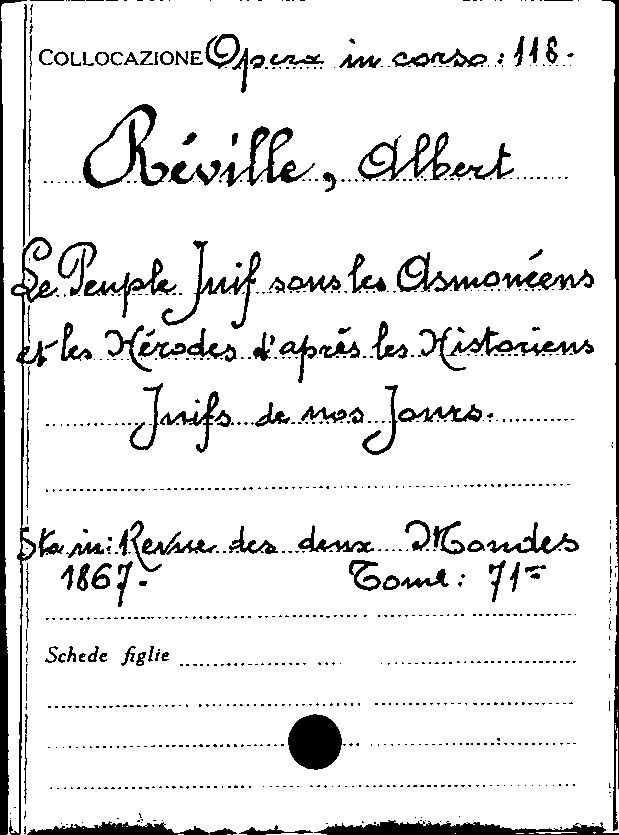 COLLOCAZIONE Opera in corso: 118.
Réville, Albert
Le Peuple Juif sous les Asmonéens
et les Hérodes d'après les Historiens
Juifs de nos Jours.
Sta in: Revue des deux Mondes
1867. Tome: 71=
Schede figlie